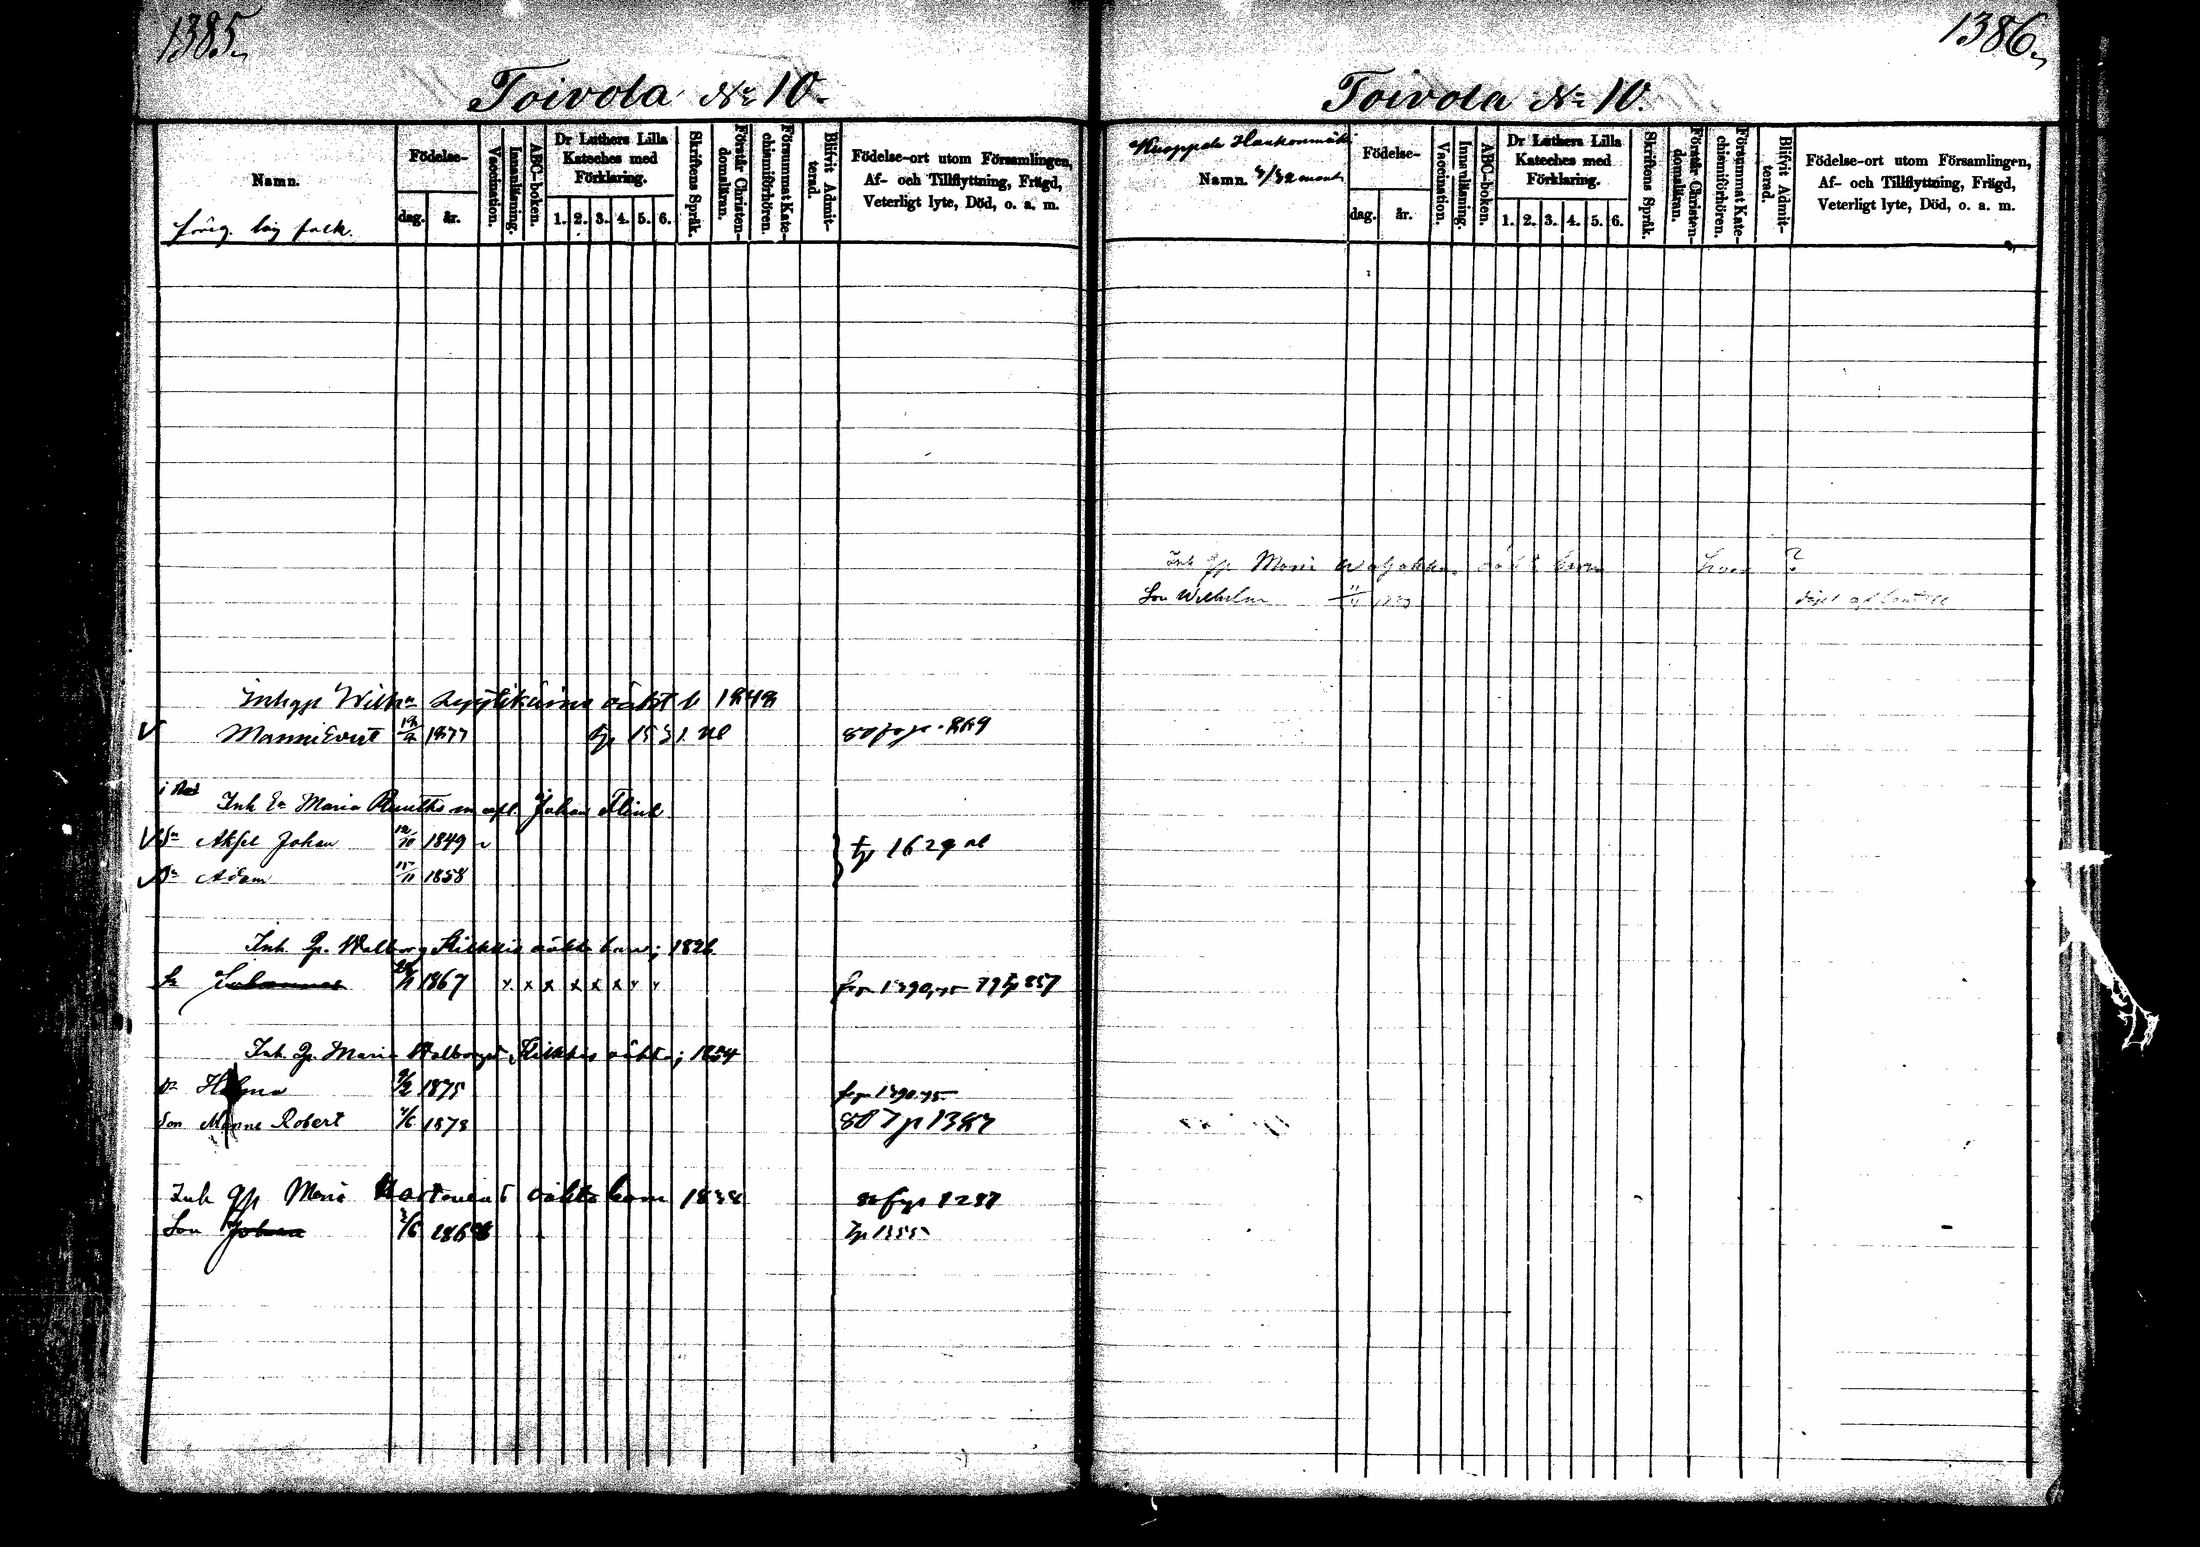 1385.
Toivola № 10.
Namn.
Födelse-
dag.
år.
Vaccination.
Innanläsning.
ABC-boken.
Dr Luthers Lilla
Kateches med
Förklaring.
1. 2. 3. 4. 5. 6.
Skriftens Språk.
Förstår Christen-
domsläran.
Försummat Kate-
chismiförhören.
Blifvit Admit-
terad.
Födelse-ort utom Församlingen,
Af- och Tillflyttning, Frägd,
Veterligt lyte, Död, o. a. m.
folk.
Inhgp Wilh:a oäkt b 1848
V Manni Evert 1877 tp 1531 80 frp 889
Inh E:a Maria m afl. Johan Flink
V Sn Aksel Johan 12/10 1849 v
V Sn Adam 15/11 1858
tp 1629
Inh. Qp. Walborg Kilkkis oäkta barn; 1826.
Johannes 1867 x x x x x x x x frp 1390, 75 79 tp 857
Inh. Qp. Maria Walborgsd. Kilkkis oäkta; 1854
Dr Hilma 9/2 1875 frp 1390.75
Son Manne Robert 4/6 1878 80 Tp 1387
Inh qp Maria oäkta barn 1838 80 frp 1287
Son Johan 1868 tp 1355
1386.
Toivola № 10.
Kuoppala Haukonmäki
Namn.
Födelse-
dag.
år.
Vaccination.
Innanläsning.
ABC-boken.
Dr Luthers Lilla
Kateches med
Förklaring.
1. 2. 3. 4. 5. 6.
Skriftens Språk.
Förstår Christen-
domsläran.
Försummat Kate-
chismiförhören.
Blifvit Admit-
terad.
Födelse-ort utom Församlingen,
Af- och Tillflyttning, Frägd,
Veterligt lyte, Död, o. a. m.
Inh Qp Maria oäkt barn ?
Son Wilhelm